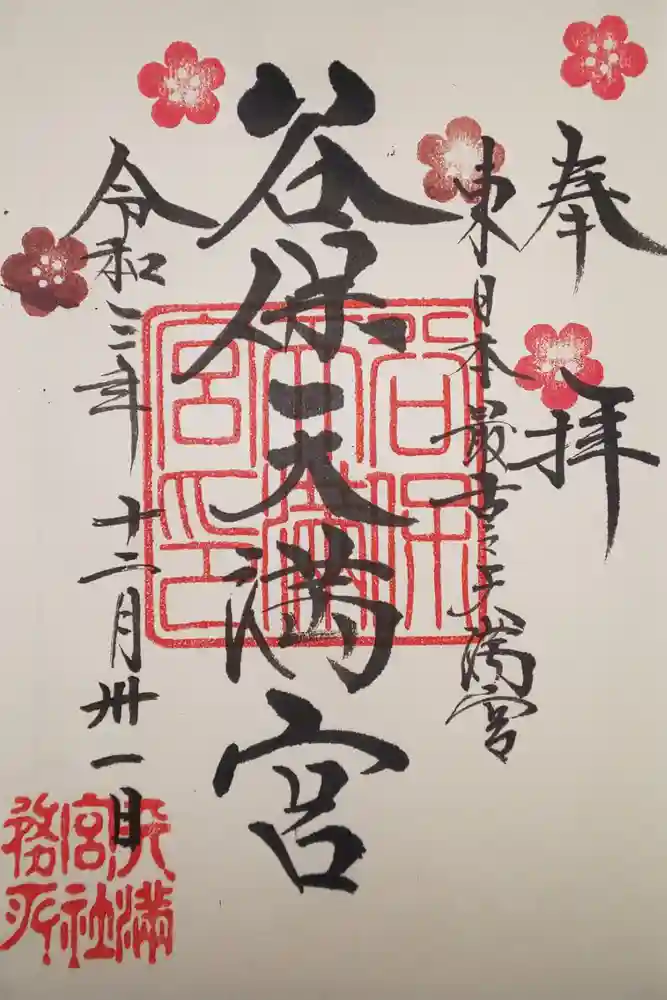 奉拝
東日本最古之天満宮
谷保天満宮
令和三年十二月卅一日
谷保天満宮印
天満宮社務所